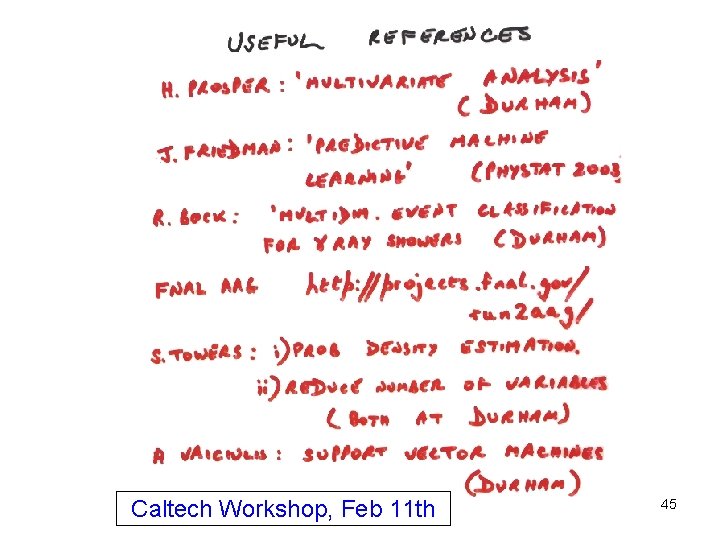 USEFUL REFERENCES
H. PROSPER : 'MULTIVARIATE ANALYSIS'
(DURHAM)
J. FRIEDMAN : 'PREDICTIVE MACHINE
LEARNING' (PHYSTAT 2003
R. BOCK : 'MULTIDIM. EVENT CLASSIFICATION
FOR γ RAY SHOWERS (DURHAM)
FNAL AAG http://projects.fnal.gov/
run2aag/
S. TOWERS : i) PROB DENSITY ESTIMATION.
ii) REDUCE NUMBER OF VARIABLES
(BOTH AT DURHAM)
A VAICIULIS : SUPPORT VECTOR MACHINES
(DURHAM)
Caltech Workshop, Feb 11th
45